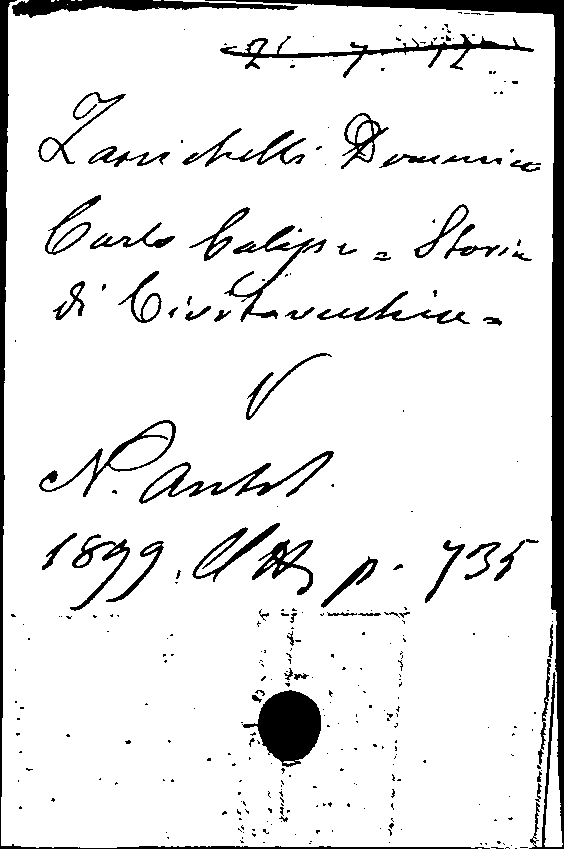 21. 7. 12
Zanichelli Domenico
Carlo Calisse = Storia
di Civitavecchia =
V
N. Antol.
1899. p. 735